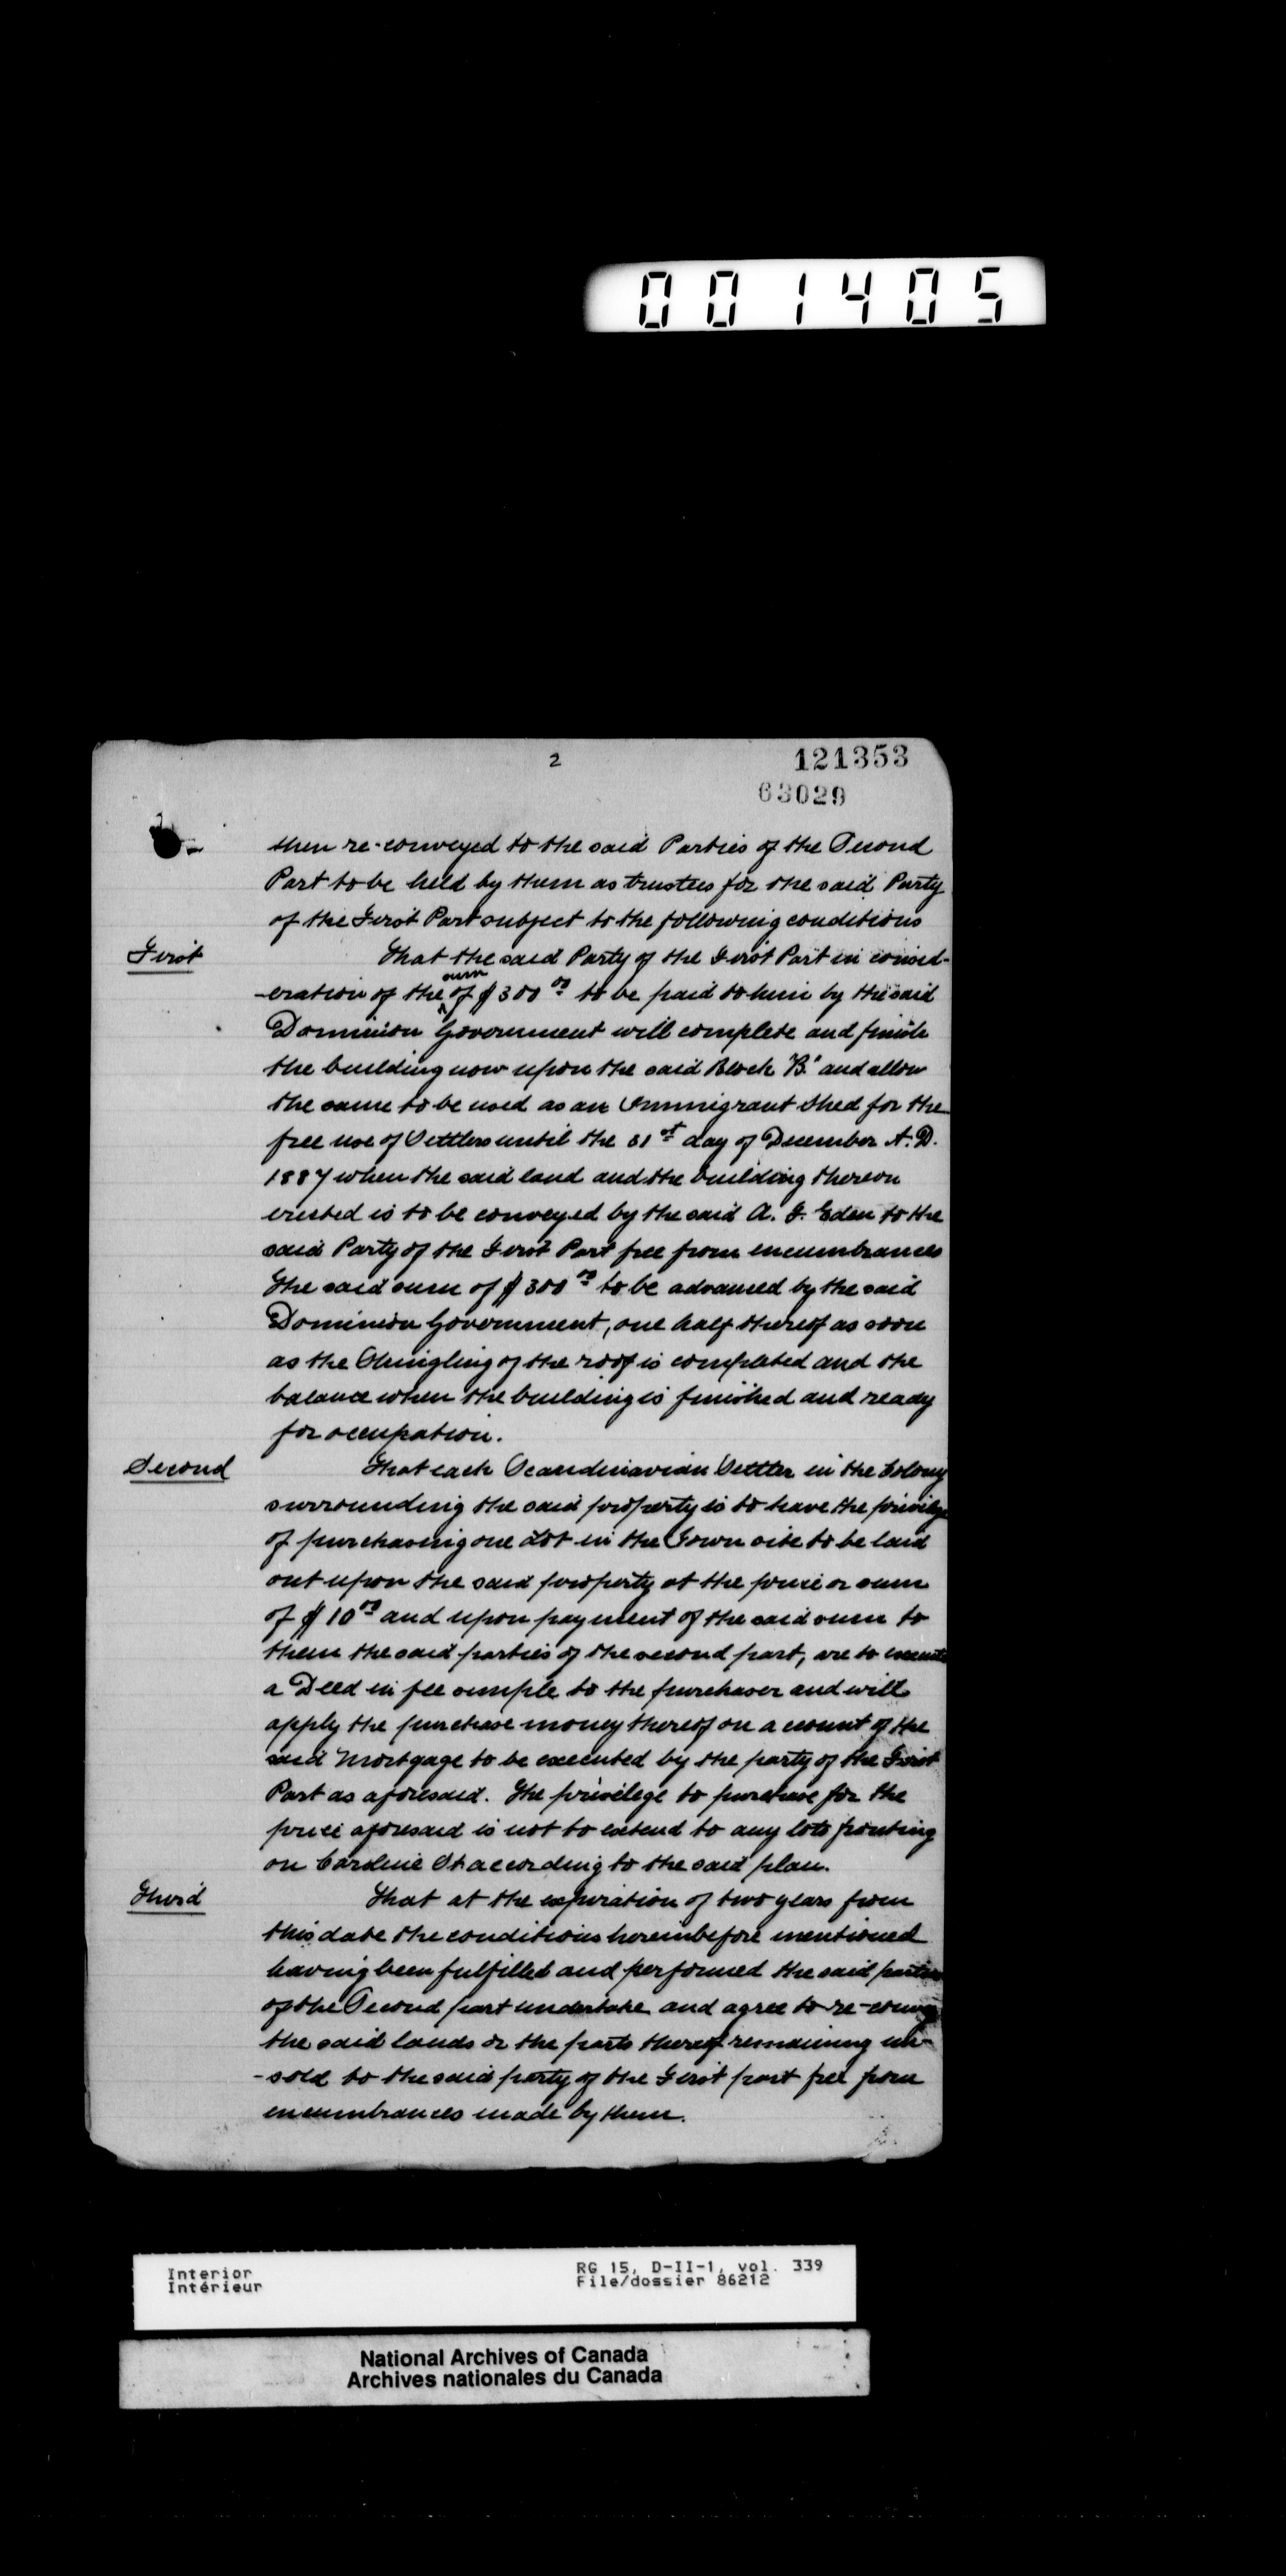 001405
2
121353
63029
then re-conveyed to the said Parties of the Second
Part to be held by them as trustees for the said Party
of the First Part subject to the following conditions
First That the said Party of the First Part in consid-
-eration of the sum of $300 00 to be paid to him by the said
Dominion Government will complete and finish
the building now upon the said Block "B." and allow
the same to be used as an Immigrant Shed for the
free use of Settlers until the 31st day of December A.D.
1887 when the said land and the building thereon
erected is to be conveyed by the said A. F. Eden to the
said Party of the First Part free from encumbrances
The said sum of $300 00 to be advanced by the said
Dominion Government, one half thereof as soon
as the Shingling of the roof is completed and the
balance when the building is finished and ready
for occupation.
Second That each Scandinavian Settler in the Colony
surrounding the said property is to have the privilege
of purchasing one Lot in the Town site to be laid
out upon the said property at the price or sum
of $10 00 and upon payment of the said sum to
them the said parties of the second part, are to execute
a Deed in fee simple to the purchaser and will
apply the purchase money thereof on account of the
said Mortgage to be executed by the party of the First
Part as aforesaid. The privilege to purchase for the
price aforesaid is not to extend to any lots fronting
on Caroline St according to the said plan.
Third That at the expiration of two years from
this date the conditions hereinbefore mentioned
having been fulfilled and performed the said parties
of the Second part undertake and agree to re-convey
the said lands or the parts thereof remaining un-
-sold to the said party of the First part free from
encumbrances made by them.
Interior
Intérieur
RG 15, D-II-1, vol. 339
File/dossier 86212
National Archives of Canada
Archives nationales du Canada